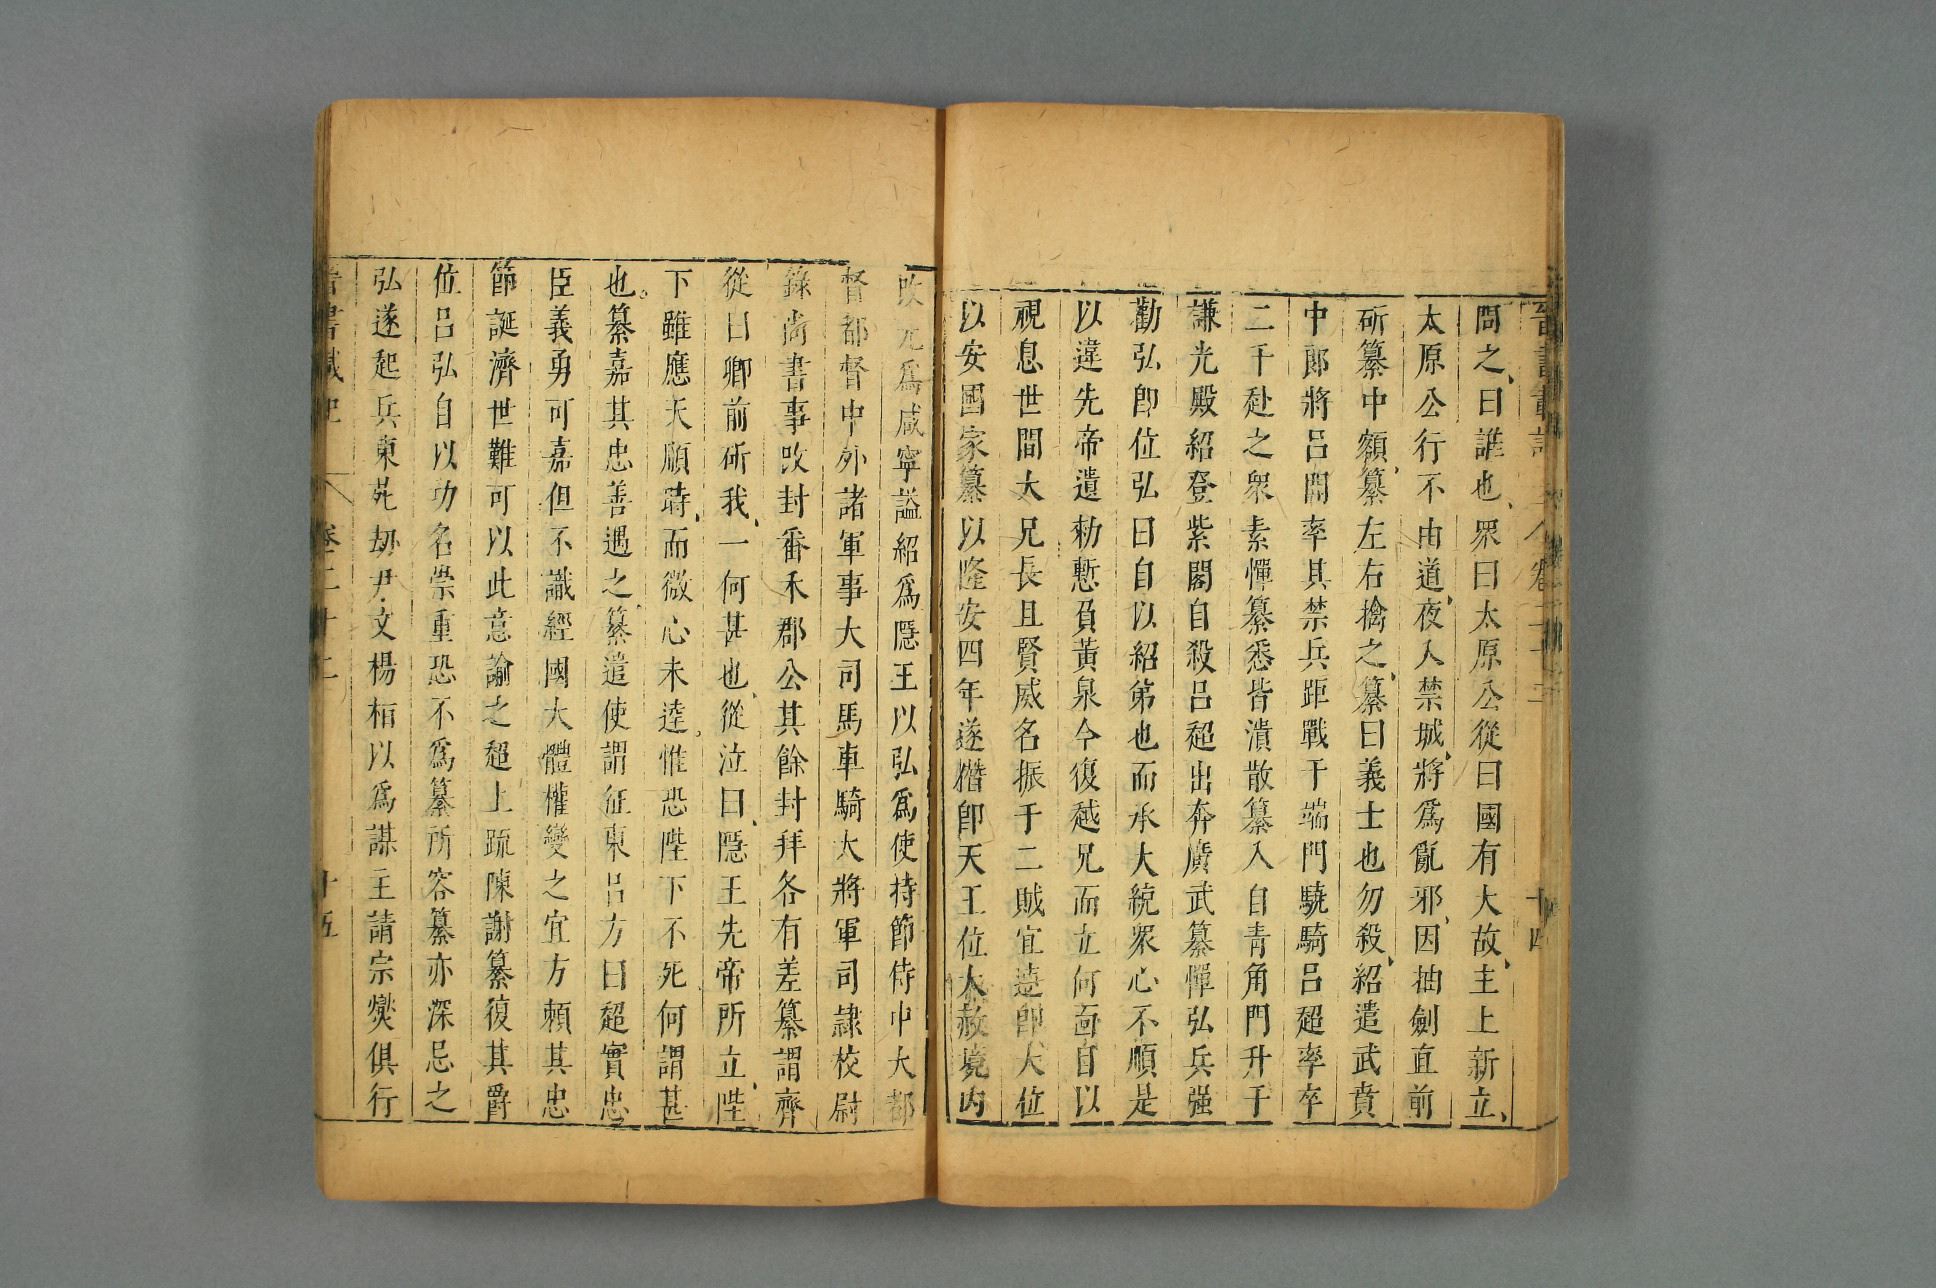 問之曰誰也眾曰太原公從曰國有大故主上新立
太原公行不由道夜入禁城將爲亂邪因抽劍直前
斫纂中額纂左右擒之纂曰義士也勿殺紹遣武賁
中郎將呂開率其禁兵距戰于端門驍騎呂超率卒
二千赴之眾素憚纂悉皆潰散纂入自青角門升于
謙光殿紹登紫閣自殺呂超出奔廣武纂憚弘兵强
勸弘卽位弘曰自以紹弟也而承大統眾心不順是
以違先帝遺勑慙負黃泉今復越兄而立何面自以
視息世間大兄長且賢威名振于二賊宜速卽大位
以安國家纂以隆安四年遂僭卽天王位大赦境内
改元爲咸寧謚紹爲隱王以弘爲使持節侍中大都
督都督中外諸軍事大司馬車騎大將軍司隷校尉
錄尚書事改封番禾郡公其餘封拜各有差纂謂齊
從曰卿前斫我一何甚也從泣曰隱王先帝所立陛
下雖應天順時而微心未達惟恐陛下不死何謂甚
也纂嘉其忠善遇之纂遣使謂征東呂方曰超實忠
臣義勇可嘉但不識經國大體權變之宜方賴其忠
節誕濟世難可以此意諭之超上疏陳謝纂復其爵
位呂弘自以功名崇重恐不爲纂所容纂亦深忌之
弘遂起兵東苑劫尹文楊桓以爲謀主請宗爕俱行
卷二十二
十五